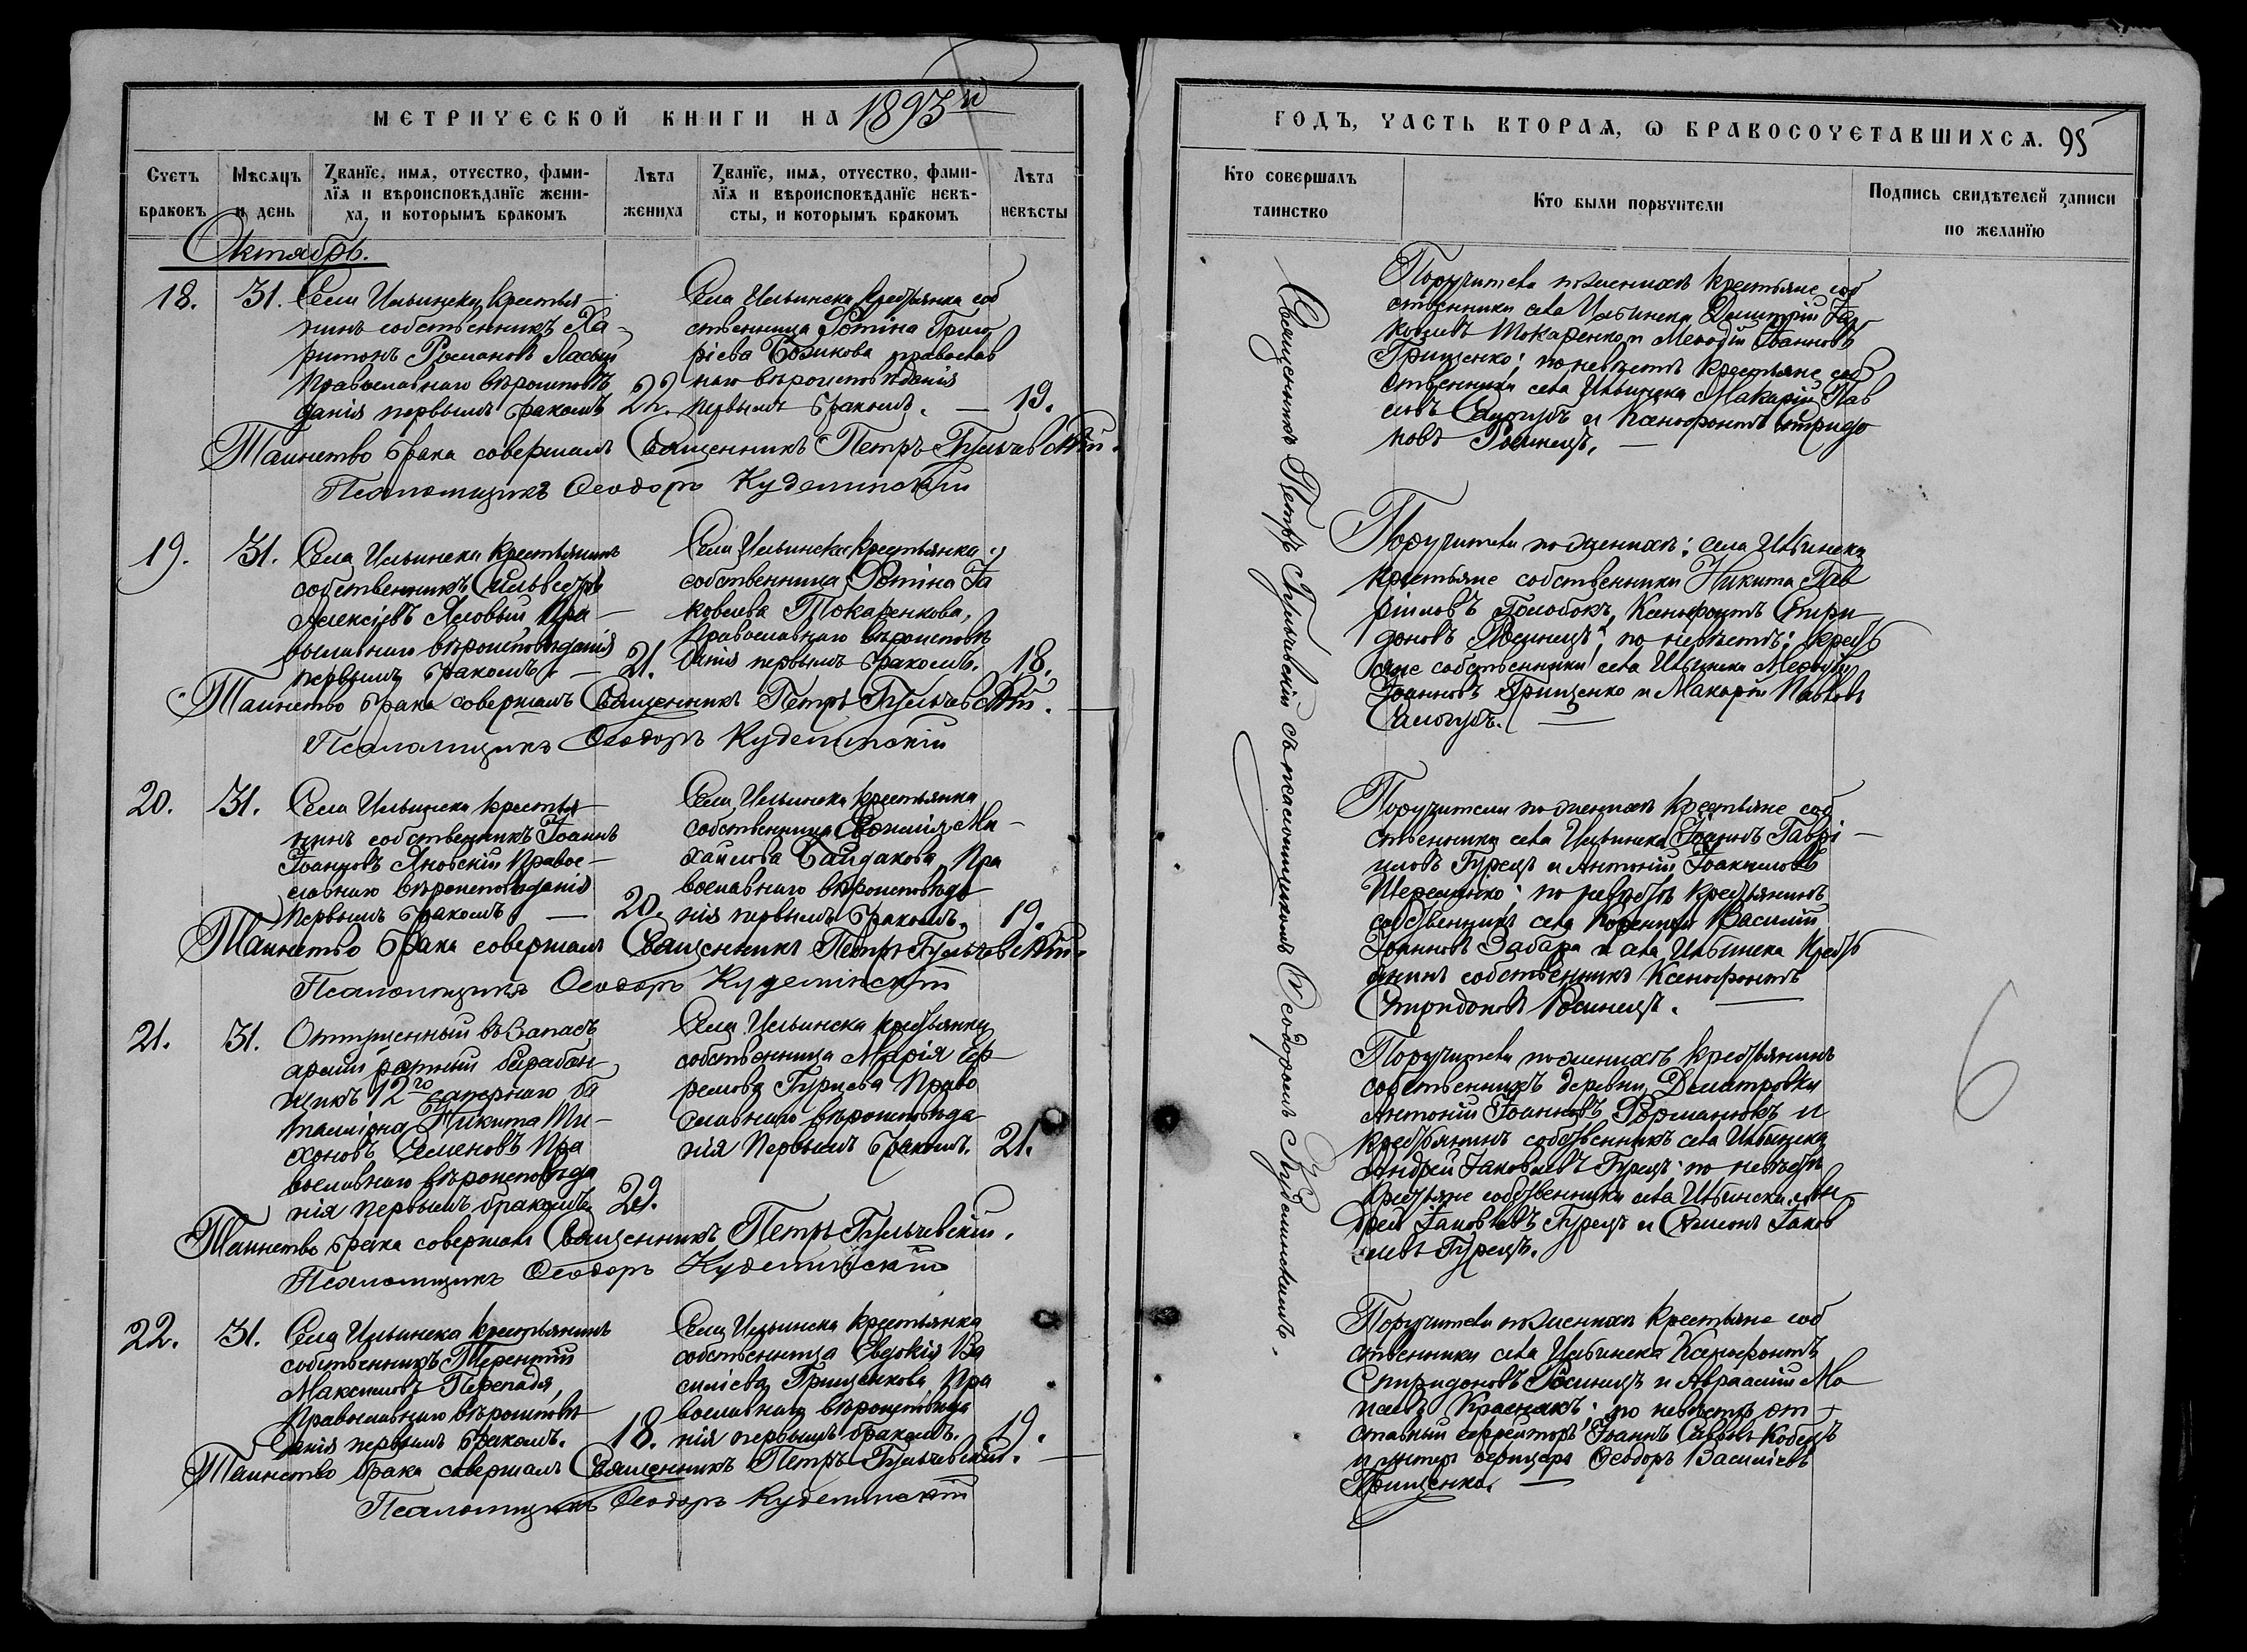 МЕТРИЧЕСКОЙ КНИГИ НА 1893й
Счетъ браковъ
Мѣсяцъ и день
Званїе, имя, отчество, фами-
лїя и вѣроисповѣданїе жени-
ха, и которымъ бракомъ
Лѣта жениха
Званїе, имя, отчество, фами-
лїя и вѣроисповѣданїе невѣ-
сты, и которымъ бракомъ
Лѣта невѣсты
Октябрь.
18. 31.
Села Ильински крестья-
нинъ собственникъ Ха-
ритонъ Романовъ
Православнаго вѣроисповѣ
данія первымъ бракомъ
22.
Села Ильинска крестьянка соб
ственница Фотина Григо
ріева православ
наго вѣроисповѣданія
первымъ бракомъ. —
19.
Таинство брака совершалъ Священникъ Петръ Гульчевскій.
Псаломщикъ Ѳеодоръ Кудеминскій
19. 31.
Села Ильински крестьянинъ
собственникъ Сильвестръ
Алексіевъ Яловый Пра-
вославнаго вѣроисповѣданія
первымъ бракомъ. —
21.
Села Ильинска крестьянка
собственница Фотина Іа
ковлева Токаренкова,
Православнаго вѣроисповѣ
данія первымъ бракомъ.
18.
Таинство брака совершалъ Священникъ Петръ Гульчевскій.
Псаломщикъ Ѳеодоръ Кудеминскій
20. 31.
Села Ильинска крестья-
нинъ собственникъ Іоаннъ
Іоанновъ Яновскій Правос-
лавнаго вѣроисповѣданія
первымъ бракомъ —
20.
Села Ильинска крестьянка
собственница Ми-
хайлова Байдакова, Пра
вославнаго вѣроисповѣда
нія первымъ бракомъ.
19.
Таинство брака совершалъ Священникъ Петръ Гульчевскій.
Псаломщикъ Ѳеодоръ Кудеминскій
21. 31.
Отпущенный въ Запасъ
арміи барабан-
щикъ 12го сапернаго ба
таліона Никита Ти-
хоновъ Семеновъ Пра
вославнаго вѣроисповѣда
нія первымъ бракомъ
29.
Села Ильинска крестьянка
собственница Марія Еф
ремова Гуриева Право
славнаго вѣроисповѣда
нія Первымъ бракомъ.
21.
Таинство брака совершалъ Священникъ Петръ Гульчевскій.
Псаломщикъ Ѳеодоръ Кудеминскій
22. 31.
Села Ильинска крестьянинъ
собственникъ Терентій
Максимовъ Перепадя,
Православнаго вѣроисповѣ
данія первымъ бракомъ.
18.
Села Ильинска крестьянка
собственница Евдокія Ва
силіева Грищенкова, Пра
вославнаго вѣроисповѣда
нія первымъ бракомъ.
19.
Таинство брака совершалъ Священникъ Петръ Гульчевскій. —
Псаломщикъ Ѳеодоръ Кудеминскій
ГОДЪ, ЧАСТЬ ВТОРАЯ, Ѡ БРАКОСОЧЕТАВШИХСЯ. 95
Кто совершалъ таинство
Кто были поручители
Подпись свидѣтелей записи по желанїю
Священникъ Петръ Гульчевскій съ псаломщикомъ Ѳеодоромъ Кудеминскимъ.
Поручители по женихѣ крестьяне соб
ственники села Ильинска Димитрій Іа
ковлевъ Токаренко и Меѳодій Іоанновъ
Грищенко; по невѣстѣ крестьяне соб
ственники села Ильинска Макарій Пав
ловъ Самогубъ и Ксенофонтъ Спиридо
новъ —
Поручители по женихѣ: села Ильинска
крестьяне собственники Никита Гав
ріиловъ Голобокъ, Ксенофонтъ Спири-
доновъ по невѣстѣ: кресть
яне собственники села Ильинска Меѳодій
Іоанновъ Грищенко и Макарій Павловъ
Самогубъ. —
Поручители по женихѣ крестьяне соб
ственники села Ильинска Іоаннъ Гаврі-
иловъ Гурецъ и Антоній Іоакимовъ
по невѣстѣ крестьянинъ
собственникъ села Василій
Іоанновъ Забара и села Ильинска кресть
янинъ собственникъ Ксенофонтъ
Спиридоновъ —
Поручители по женихѣ крестьянинъ
собственникъ деревни Дмитровки
Антоній Іоанновъ Форманюкъ и
крестьянинъ собственникъ села Ильинска
Андрей Іаковлевъ Гурецъ; по невѣстѣ
крестьяне собственники села Ильинска Анд
рей Іаковлевъ Гурецъ и Симонъ Іаков
левъ Гурецъ.
Поручители по женихѣ крестьяне соб
ственники села Ильинска Ксенофонтъ
Спиридоновъ и Авраамій Ма
по невѣстѣ от
ставный ефрейторъ Іоаннъ Саввинъ Кобецъ
и унтеръ офицеръ Ѳеодоръ Василіевъ
Грищенко. —
6